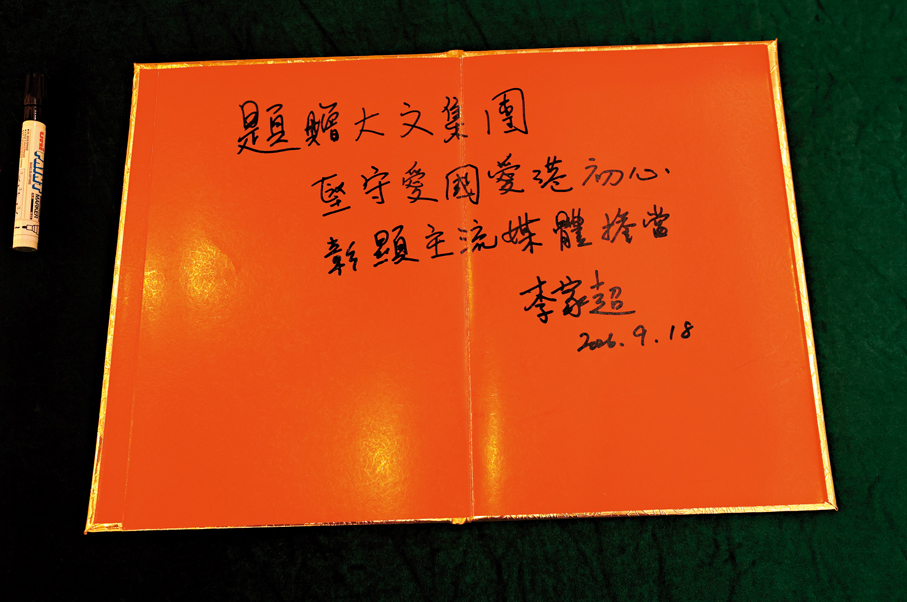 題贈大文集團
堅守愛國愛港初心
彰顯主流媒體擔當
李家超
2026.9.18
uni
PAINT
MARKER